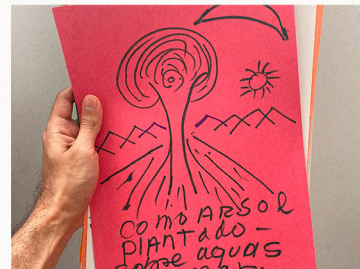 como ARSol
plantado-
sobre aguas